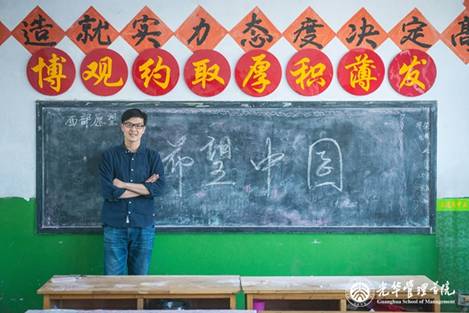 造就实力态度决定高
博观约取厚积薄发
西部愿望
希望中国
光华管理学院
Guanghua School of Management